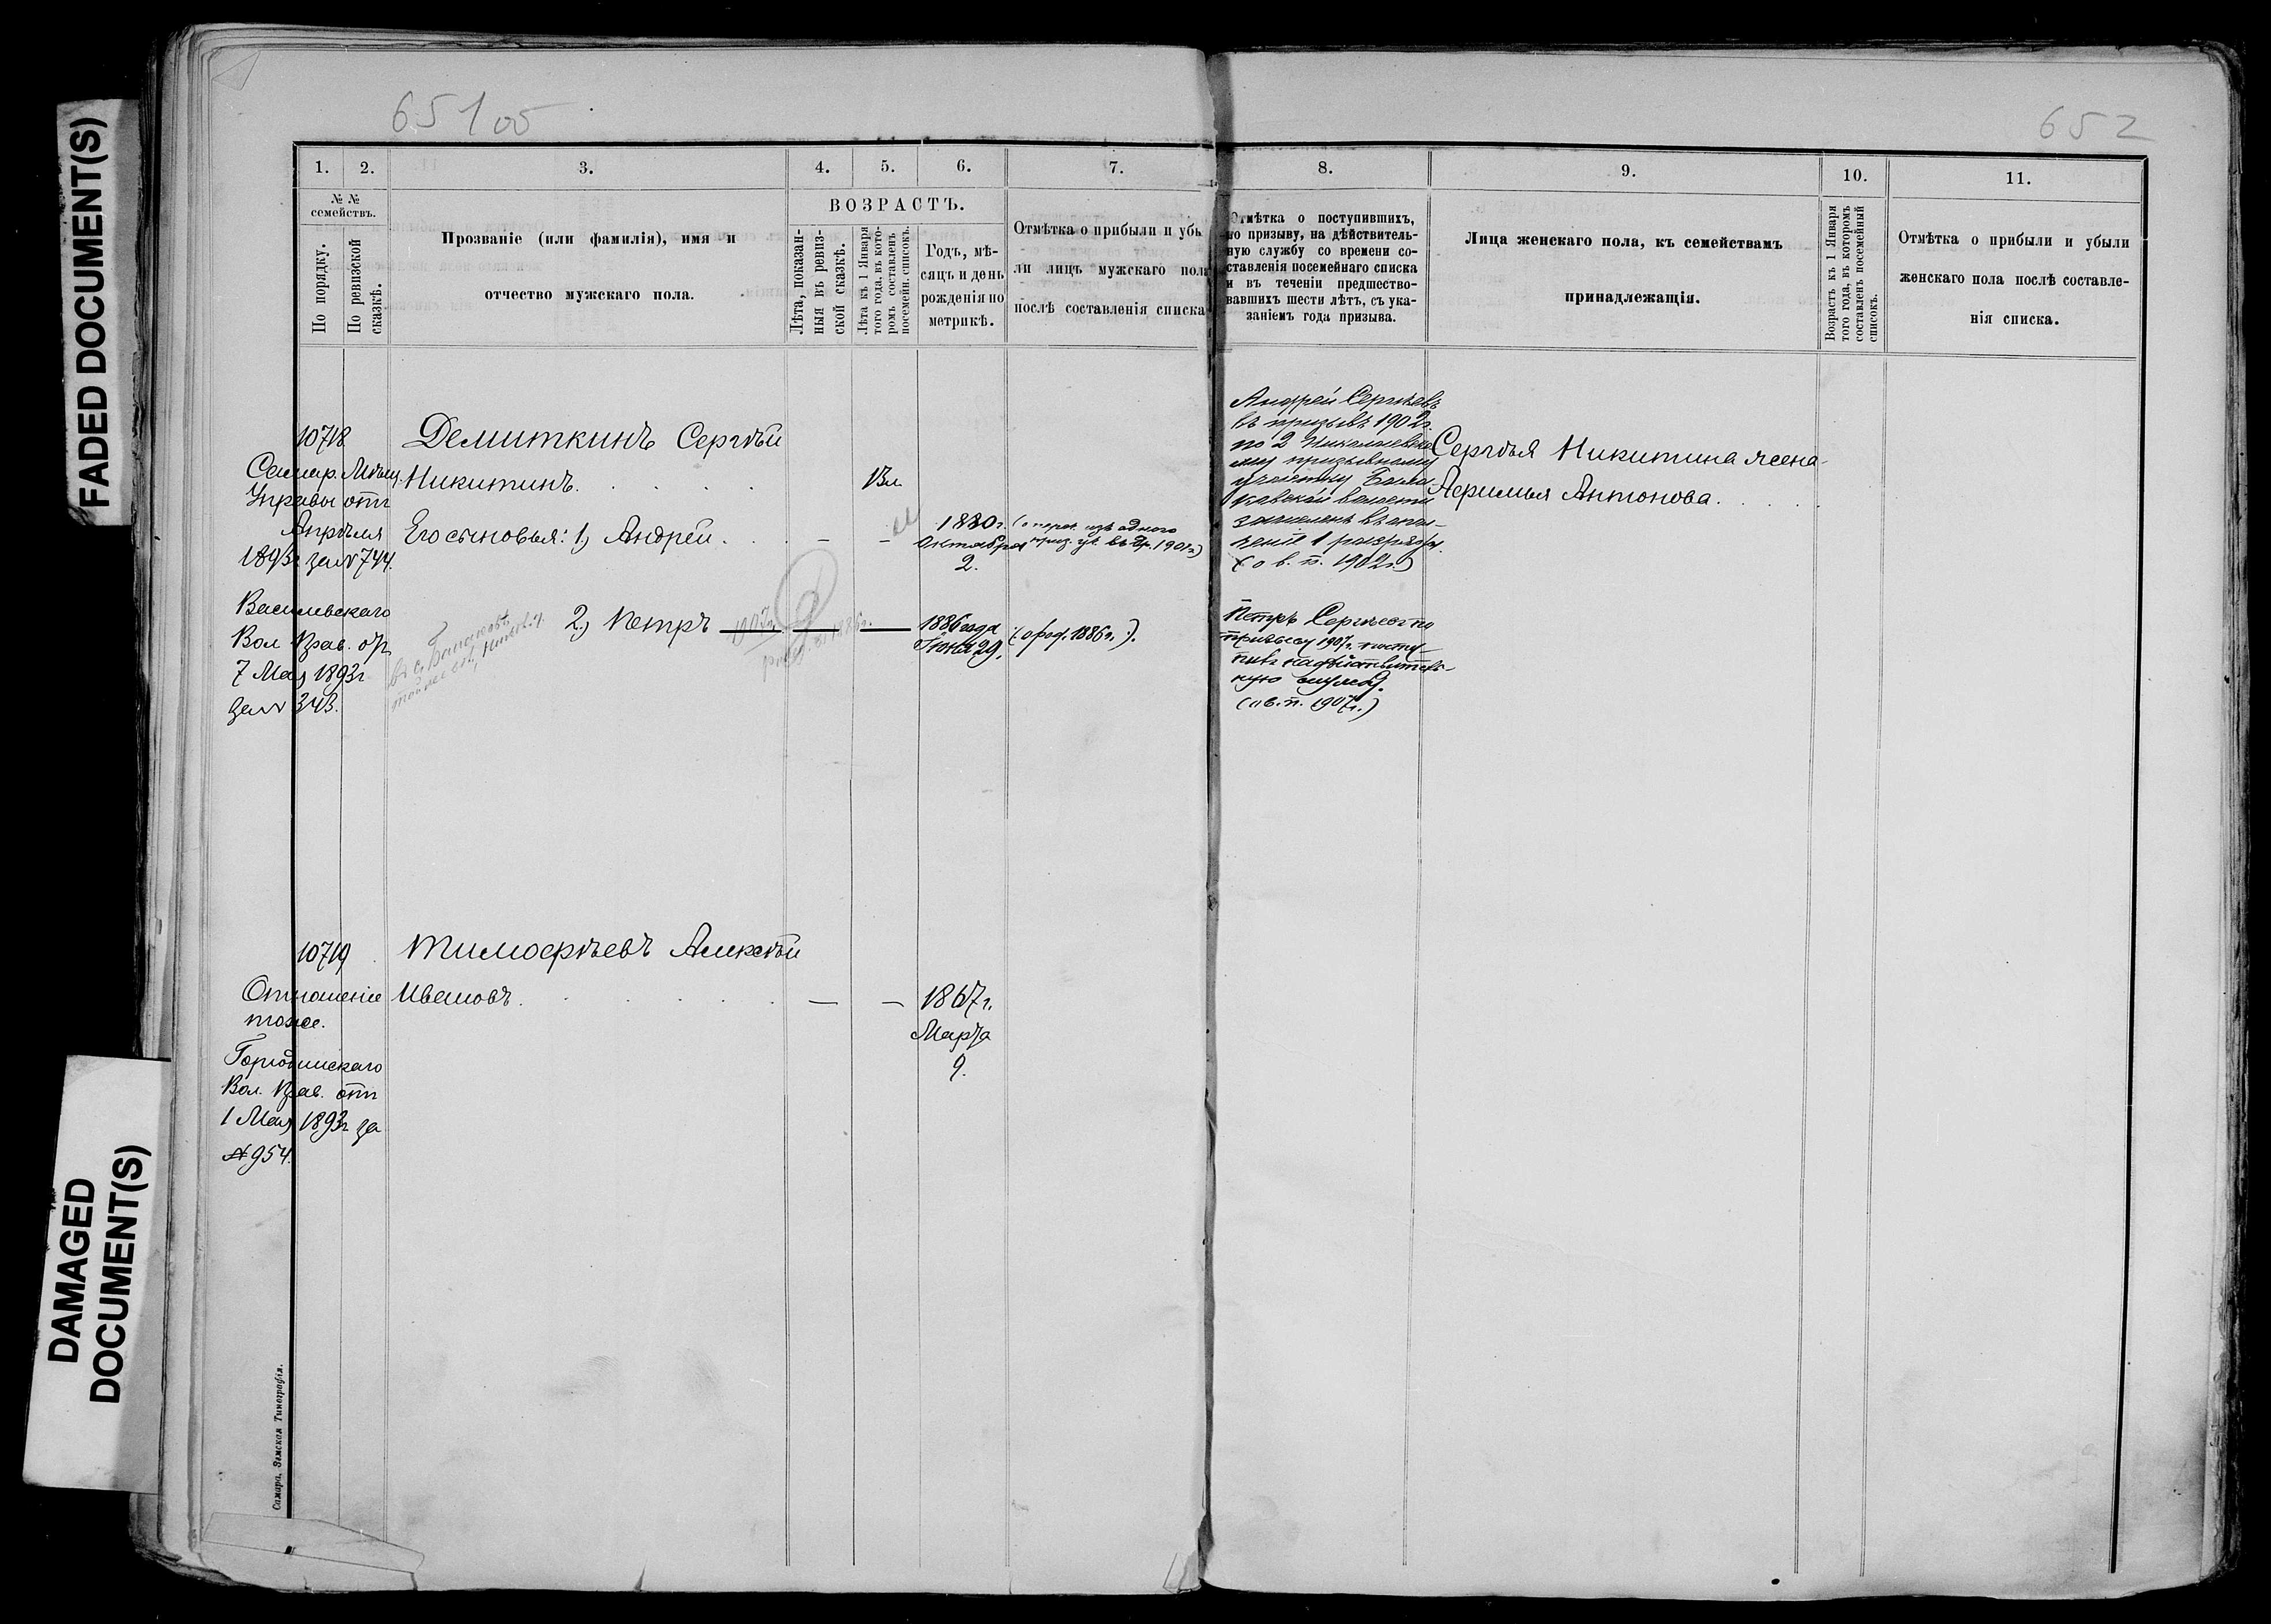 FADED DOCUMENT(S)
DAMAGED
DOCUMENT(S)
651 об
652
1.
2.
3.
4.
5.
6.
7.
8.
9.
10.
11.
№ №
семействъ.
По порядку.
По ревизской
сказкѣ.
Прозваніе (или фамилія), имя и
отчество мужскаго пола.
ВОЗРАСТЪ.
Лѣта, показан-
ныя въ ревиз-
ской сказкѣ.
Лѣта къ 1 Января
того года, въ кото-
ромъ составленъ
посемейн. списокъ.
Годъ, мѣ-
сяцъ и день
рожденія по
метрикѣ.
Отмѣтка о прибыли и убы
ли лицъ мужскаго пола
послѣ составленія списка
Отмѣтка о поступившихъ,
по призыву, на дѣйствитель-
ную службу со времени со-
ставленія посемейнаго списка
и въ теченіи предшество-
вавшихъ шести лѣтъ, съ ука-
заніемъ года призыва.
Лица женскаго пола, къ семействамъ
принадлежащія.
Возрастъ къ 1 Января
того года, въ которомъ
составленъ посемейный
списокъ.
Отмѣтка о прибыли и убыли
женскаго пола послѣ составле-
нія списка.
10718
Самар. Мѣщ.
Управы отъ
Апрѣля
1893г за № 744.
Василевскаго
Вол Прав. отъ
7 Мая 1893г
за № 343.
Демиткинъ Сергѣй
Никитинъ.
Его сыновья: 1) Андрей.
1880г.
Октября
2.
(о перев. изъ одного
приз. уч. въ др. 1901г.)
2) Петръ
1907г.
1886 года
Іюня 29.
(о род. 1886 г.).
Андрей Сергѣевъ
въ призывъ 1902г.
по 2 Николаевско
му призывному
участку
волости
зачисленъ въ опол-
ченіе 1 разряда.
(о в. п. 1902г.)
Петръ Сергѣевъ по
призыву 1907г. посту-
пилъ на дѣйствитель-
ную службу.
(о в. п. 1907г.)
Сергѣя Никитина жена
Афимья Антонова.
10719
Отношеніе
тоже.
Вол. Прав. отъ
1 Мая 1893г за
№ 954.
Тимофѣевъ Алексѣй
Ивановъ.
1867г.
Марта
9.
Самара, Земская Типографія.